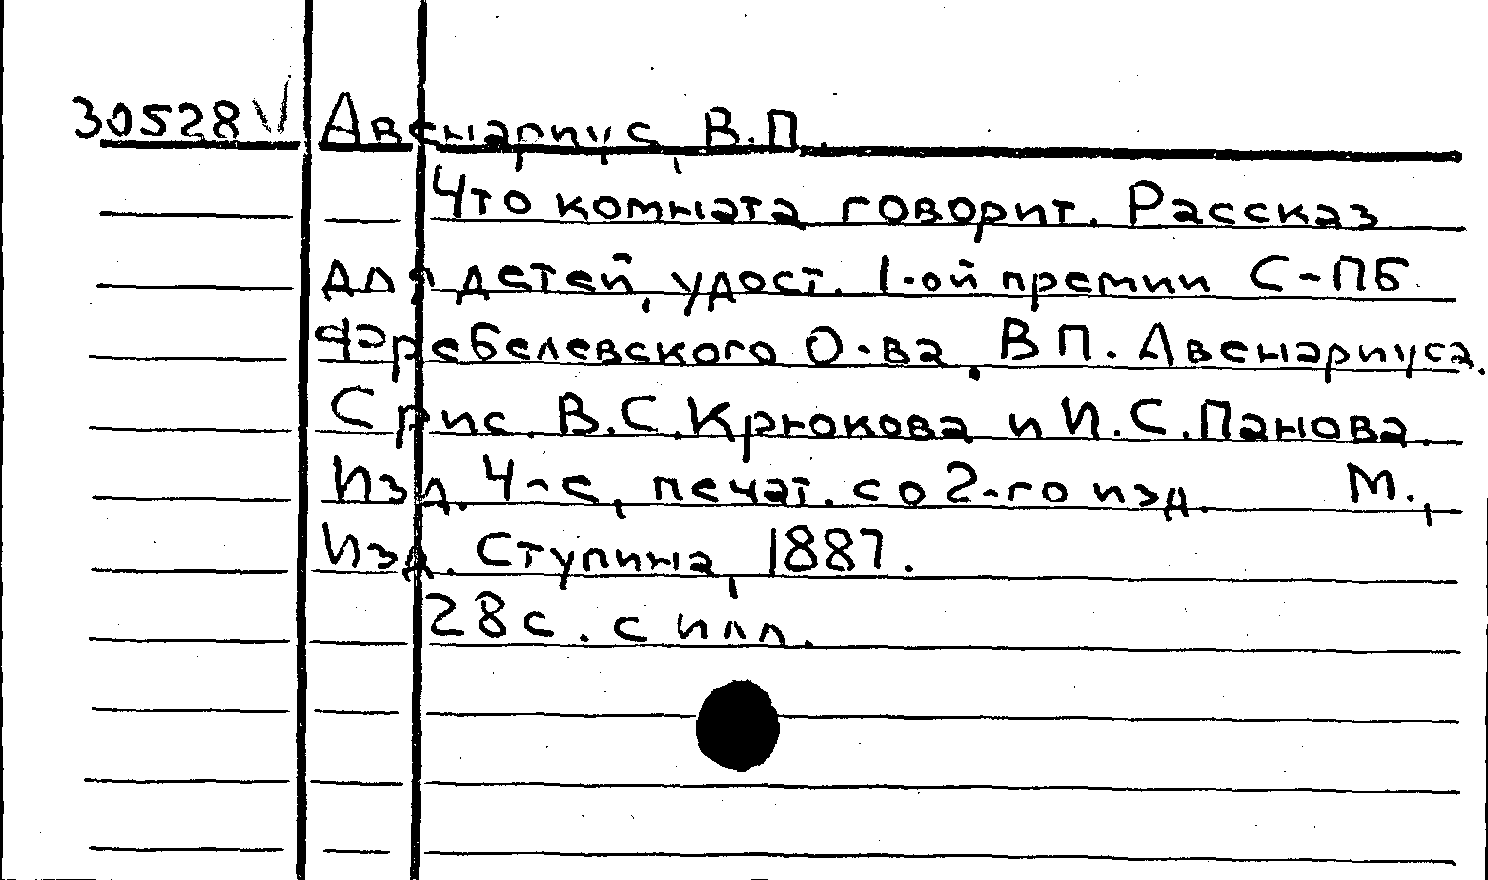 30528 V Авенариус, В.П.
Что комната говорит. Рассказ
для детей, удост. 1-ой премии С-ПБ.
Фребелевского О-ва, В П. Авенариуса.
С рис. В.С.Крюкова и И.С.Панова.
Изд. 4-е, печат. со 2-го изд. М.,
Изд. Ступина, 1887.
28 с. с илл.